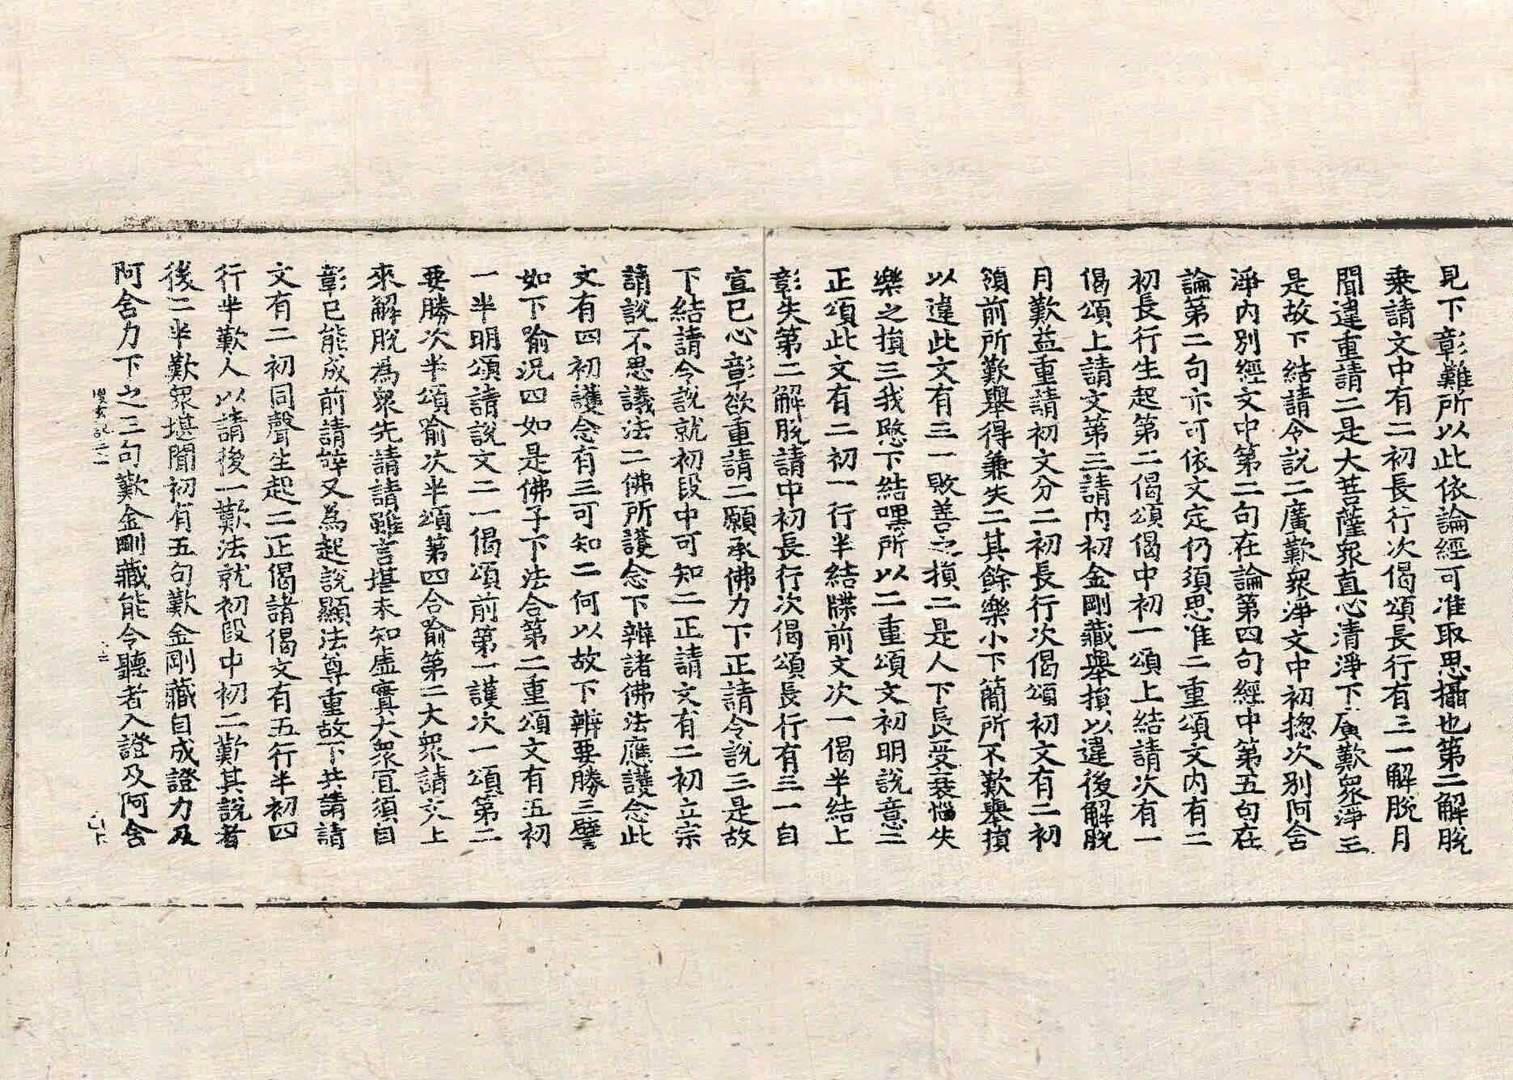 見下彰難所以此依論經可准取思攝也第二解脫
乘請文中有二初長行次偈頌長行有三一解脫月
聞違重請二是大菩薩衆直心清淨下廣歎衆淨三
是故下結請令說二廣歎衆淨文中初揔次別阿含
淨內別經文中第二句在論第四句經中第五句在
論第二句亦可依文定仍須思准二重頌文內有二
初長行生起第二偈頌偈中初一頌上結請次有一
偈頌上請文第三請內初金剛藏舉損以違後解脫
月歎益重請初文分二初長行次偈頌初文有二初
領前所歎舉得兼失二其餘樂小下簡所不歎舉損
以違此文有三一敗善之損二是人下長受衰惱失
樂之損三我愍下結嘿所以二重頌文初明說意二
正頌此文有二初一行半結牒前文次一偈半結上
彰失第二解脫請中初長行次偈頌長行有三一自
宣已心彰欲重請二願承佛力下正請令說三是故
下結請令說就初段中可知二正請文有二初立宗
請說不思議法二佛所護念下辨諸佛法應護念此
文有四初護念有三可知二何以故下辨要勝三譬
如下喻況四如是佛子下法合第二重頌文有五初
一半明頌請說文二一偈頌前第一護次一頌第二
要勝次半頌喻次半頌第四合喻第三大衆請文上
來解脫為衆先請請雖言堪未知虛實大衆宜須自
彰已能成前請辝又為起說顯法尊重故下共請請
文有二初同聲生起二正偈諸偈文有五行半初四
行半歎人以請後一歎法就初段中初二歎其說者
後二半歎衆堪聞初有五句歎金剛藏自成證力及
阿含力下之三句歎金剛藏能令聽者入證及阿含